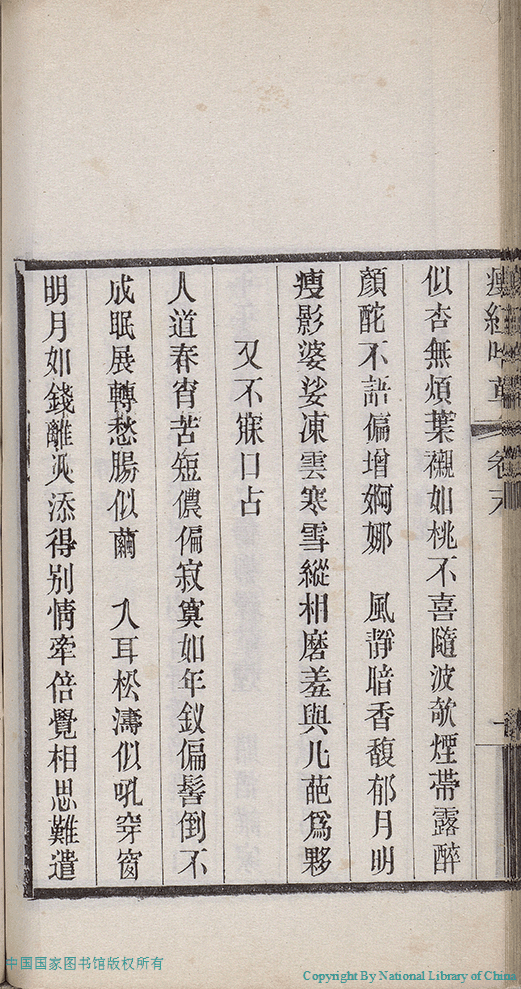 瘦紅吟草 卷末 一
似杏無煩葉襯如桃不喜隨波欹煙帶露醉
顏酡不語偏增婀娜　風靜暗香馥郁月明
瘦影婆娑凍雲寒雪縱相磨羞與凡葩爲夥
又不寐口占
人道春宵苦短儂偏寂寞如年釵偏髻倒不
成眠展轉愁腸似繭　入耳松濤似吼穿窗
明月如錢離添得別情牽倍覺相思難遣
中国国家图书馆版权所有
Copyright By National Library of China